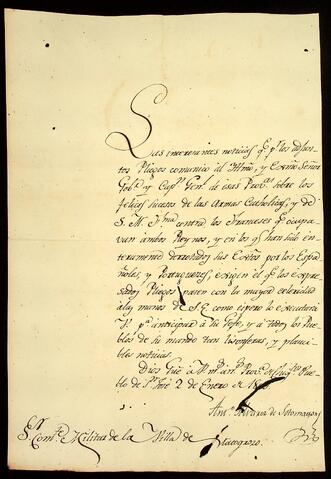 Las interesantes noticias q.e p.r los adjun
tos Pliegos comunico al Illmo, y Exmo Señor
Gob.or y Cap.n Gen. de esas Prov.s sobre los
felices sucesos de las Armas Catholicas, y de
S. M. contra los Franceses q.e ocupa
van ambos Reynos, y en los q.e han sido en
teramente derrotados sus Extos por los Espa
ñoles, y Portugueses, exigen el q.e los expre
sados Pliegos pasen con la mayor celeridad
a las manos de S. E. como espero lo executará
V. p.a anticipar a su Gefe, y a todos los Pue
blos de su mando tan lisongeras, y plausi
bles noticias.
Dios gue a V. m.s an.s
blo de S.n José 2 de Enero de
Ant.o Alvarez de Sotomayor
S.or Com.te Militar de la Villa de